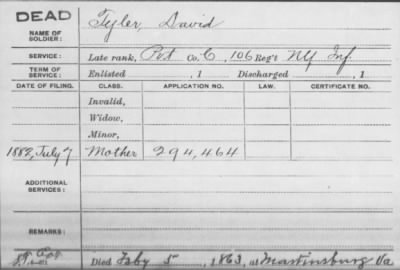 DEAD
NAME OF SOLDIER: Tyler, David
SERVICE: Late rank, Pvt Co. C, 106 Reg't NY Inf.
TERM OF SERVICE: Enlisted , 1 Discharged , 1
DATE OF FILING. CLASS. APPLICATION NO. LAW. CERTIFICATE NO.
Invalid,
Widow,
Minor,
1882, July 7 Mother 294,464
ADDITIONAL SERVICES:
REMARKS:
Died Feby 5, 1863, at Martinsburg Va